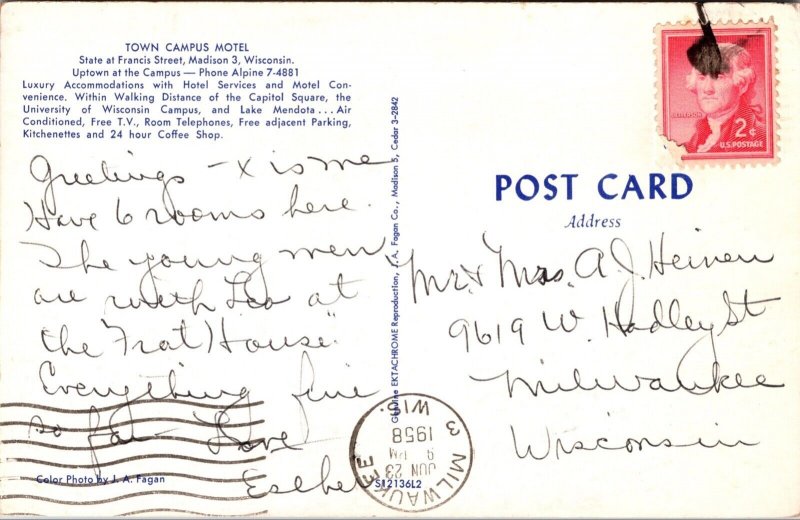 TOWN CAMPUS MOTEL
State at Francis Street, Madison 3, Wisconsin.
Uptown at the Campus — Phone Alpine 7-4881
Luxury Accommodations with Hotel Services and Motel Con-
venience. Within Walking Distance of the Capitol Square, the
University of Wisconsin Campus, and Lake Mendota . . . Air
Conditioned, Free T.V., Room Telephones, Free adjacent Parking,
Kitchenettes and 24 hour Coffee Shop.
Greetings - X is me
Have 6 rooms here.
The young men
are with Leo at
the "Frat House".
Everything fine
so far - Love
Esther
Color Photo by J. A. Fagan
Genuine EKTACHROME Reproduction, J. A. Fagan Co., Madison 5, Cedar 3-2842
S12136L2
MILWAUKEE 3
WIS.
JUN 23
9 PM
1958
JEFFERSON
2¢
U.S. POSTAGE
POST CARD
Address
Mr. & Mrs. A. J. Heinen
9619 W. Hadley St
Milwaukee
Wisconsin